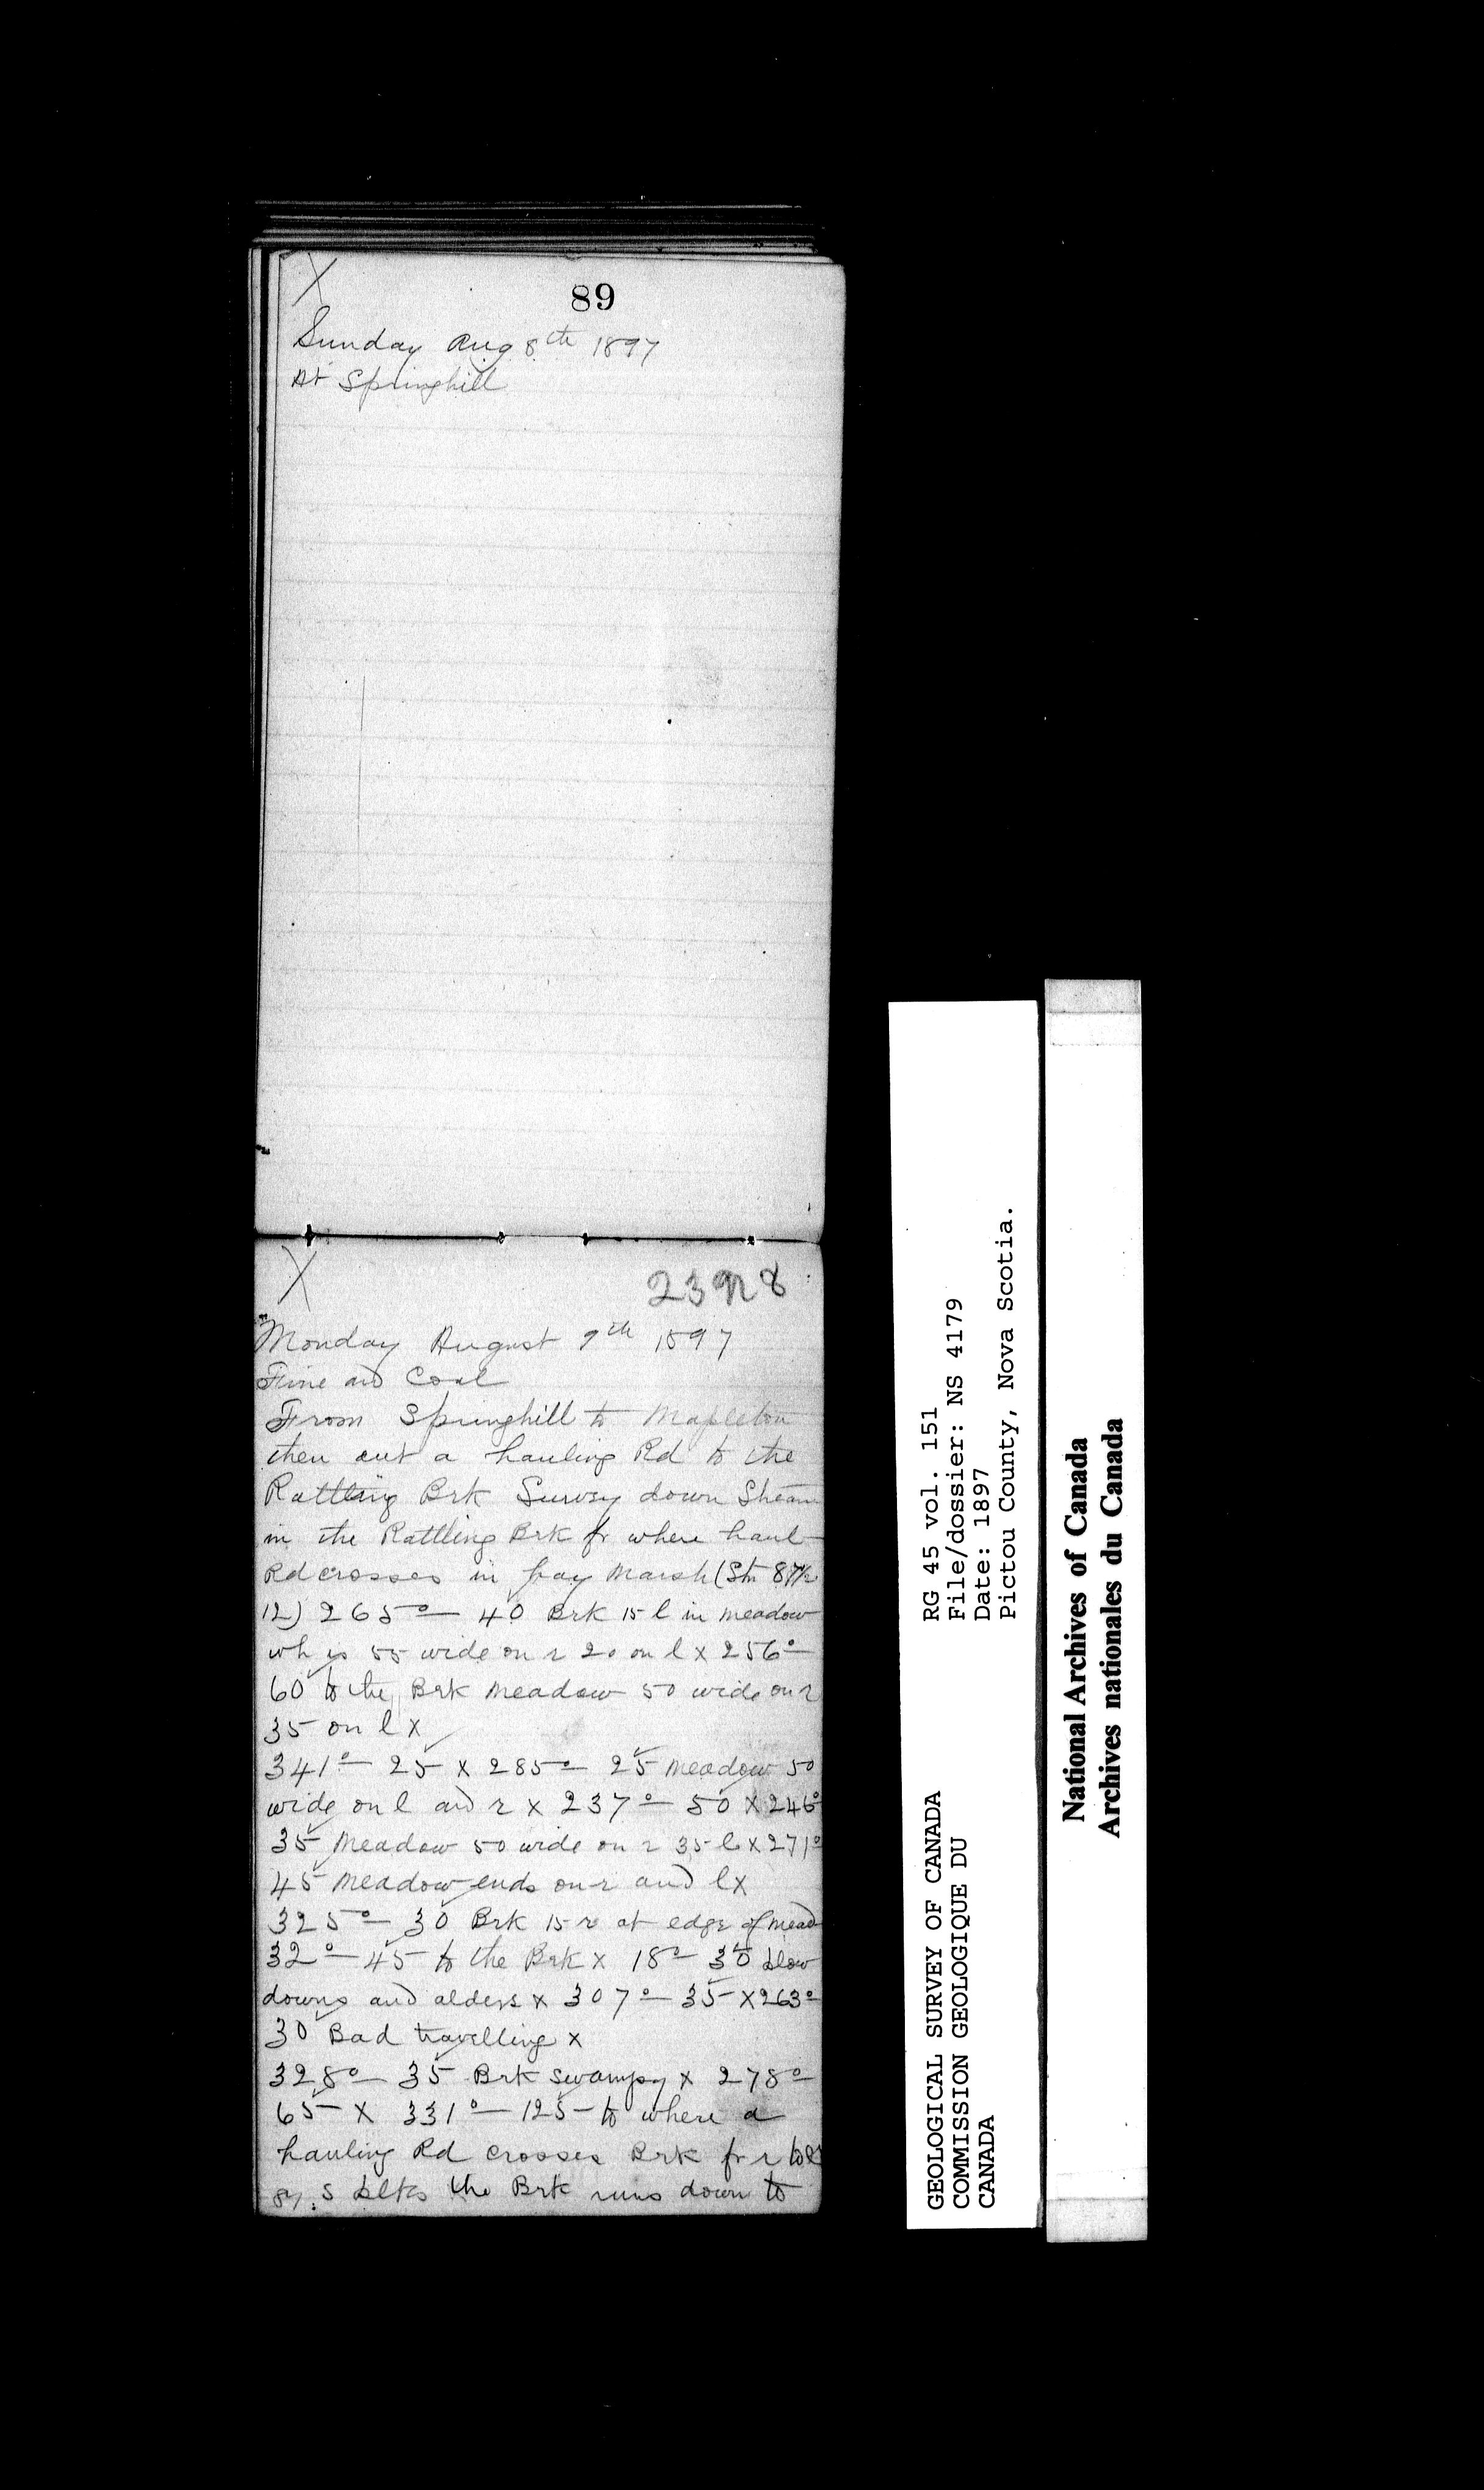 X
89
Sunday Aug 8th 1897
At Springhill
X
2328
Monday August 9th 1897
Fine and Cool
From Springhill to Mapleton
then out a hauling Rd to the
Rattling Brk Survey down Stream
in the Rattling Brk fr where haul
Rd crosses in hay Marsh (Stn 87½
12) 265° — 40 Brk 15 l in meadow
wh is 55 wide on r 20 on l x 256° —
60 to the Brk Meadow 50 wide on r
35 on l x
341° — 25 x 285° — 25 meadow 50
wide on l and r x 237° — 50 x 246°
35 Meadow 50 wide on r 35 l x 271°
45 Meadow ends on r and l x
325° — 30 Brk 15 r at edge of mead
32° — 45 to the Brk x 18° — 30 blow
downs and alders x 307° — 35 x 263°
30 Bad travelling x
328° — 35 Brk swampy x 278° —
65 x 331° — 125 — to where a
hauling Rd crosses Brk fr r to l
S the Brk runs down to
GEOLOGICAL SURVEY OF CANADA
COMMISSION GEOLOGIQUE DU
CANADA
RG 45 vol. 151
File/dossier: NS 4179
Date: 1897
Pictou County, Nova Scotia.
National Archives of Canada
Archives nationales du Canada